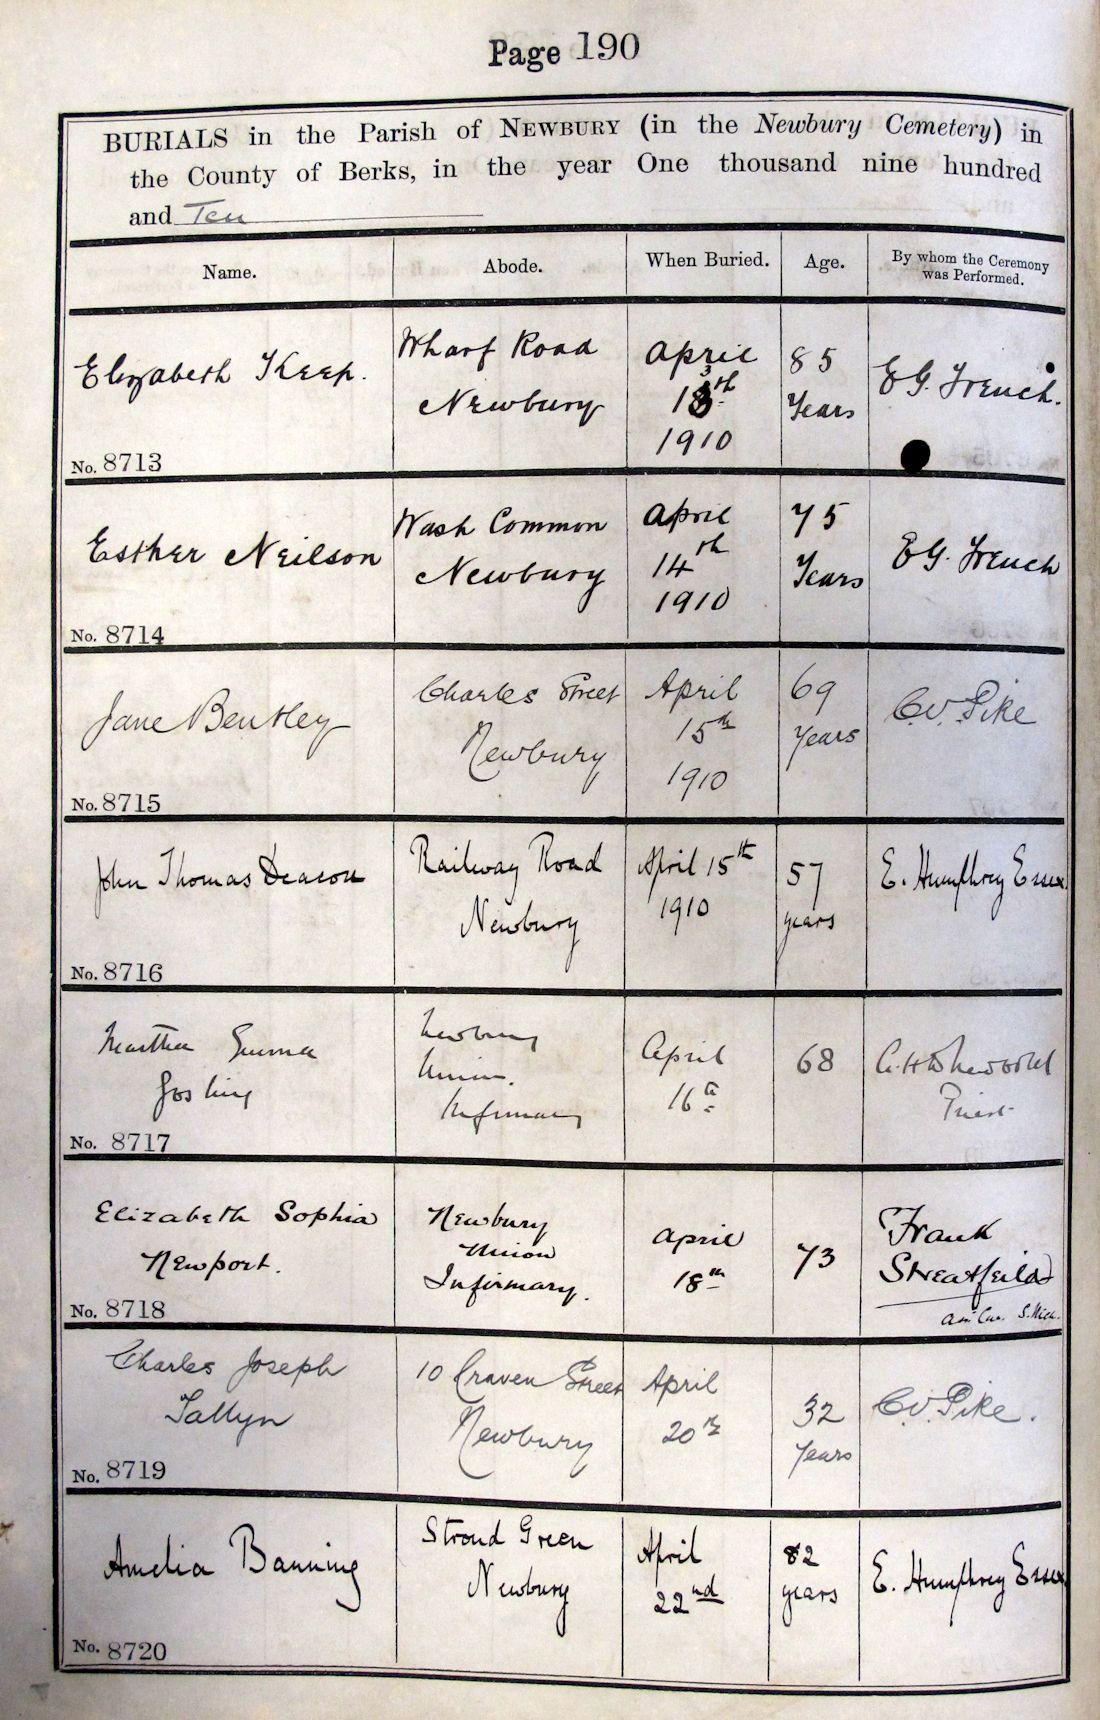 Page 190
BURIALS in the Parish of NEWBURY (in the Newbury Cemetery) in
the County of Berks, in the year One thousand nine hundred
and Ten
Name. Abode. When Buried. Age. By whom the Ceremony
was Performed.
Elizabeth Keep.
Wharf Road
Newbury
April
13th
1910
85
Years
E.G. French.
No. 8713
Esther Neilson
Wash Common
Newbury
April
14th
1910
75
Years
E.G. French
No. 8714
Jane Bentley
Charles Street
Newbury
April
15th
1910
69
Years
C.V. Pike
No. 8715
John Thomas Deacon
Railway Road
Newbury
April 15th
1910
57
years
E. Humphrey Essex
No. 8716
Martha Emma
Gosling
Newbury
Union.
Infirmary
April
16th
68
Priest
No. 8717
Elizabeth Sophia
Newport.
Newbury
Union
Infirmary.
April
18th
73
Frank
Streatfeild
No. 8718
Charles Joseph
Tallyn
10 Craven Street
Newbury
April
20th
32
Years
C.V. Pike.
No. 8719
Amelia Banning
Stroud Green
Newbury
April
22nd
82
years
E. Humphrey Essex
No. 8720